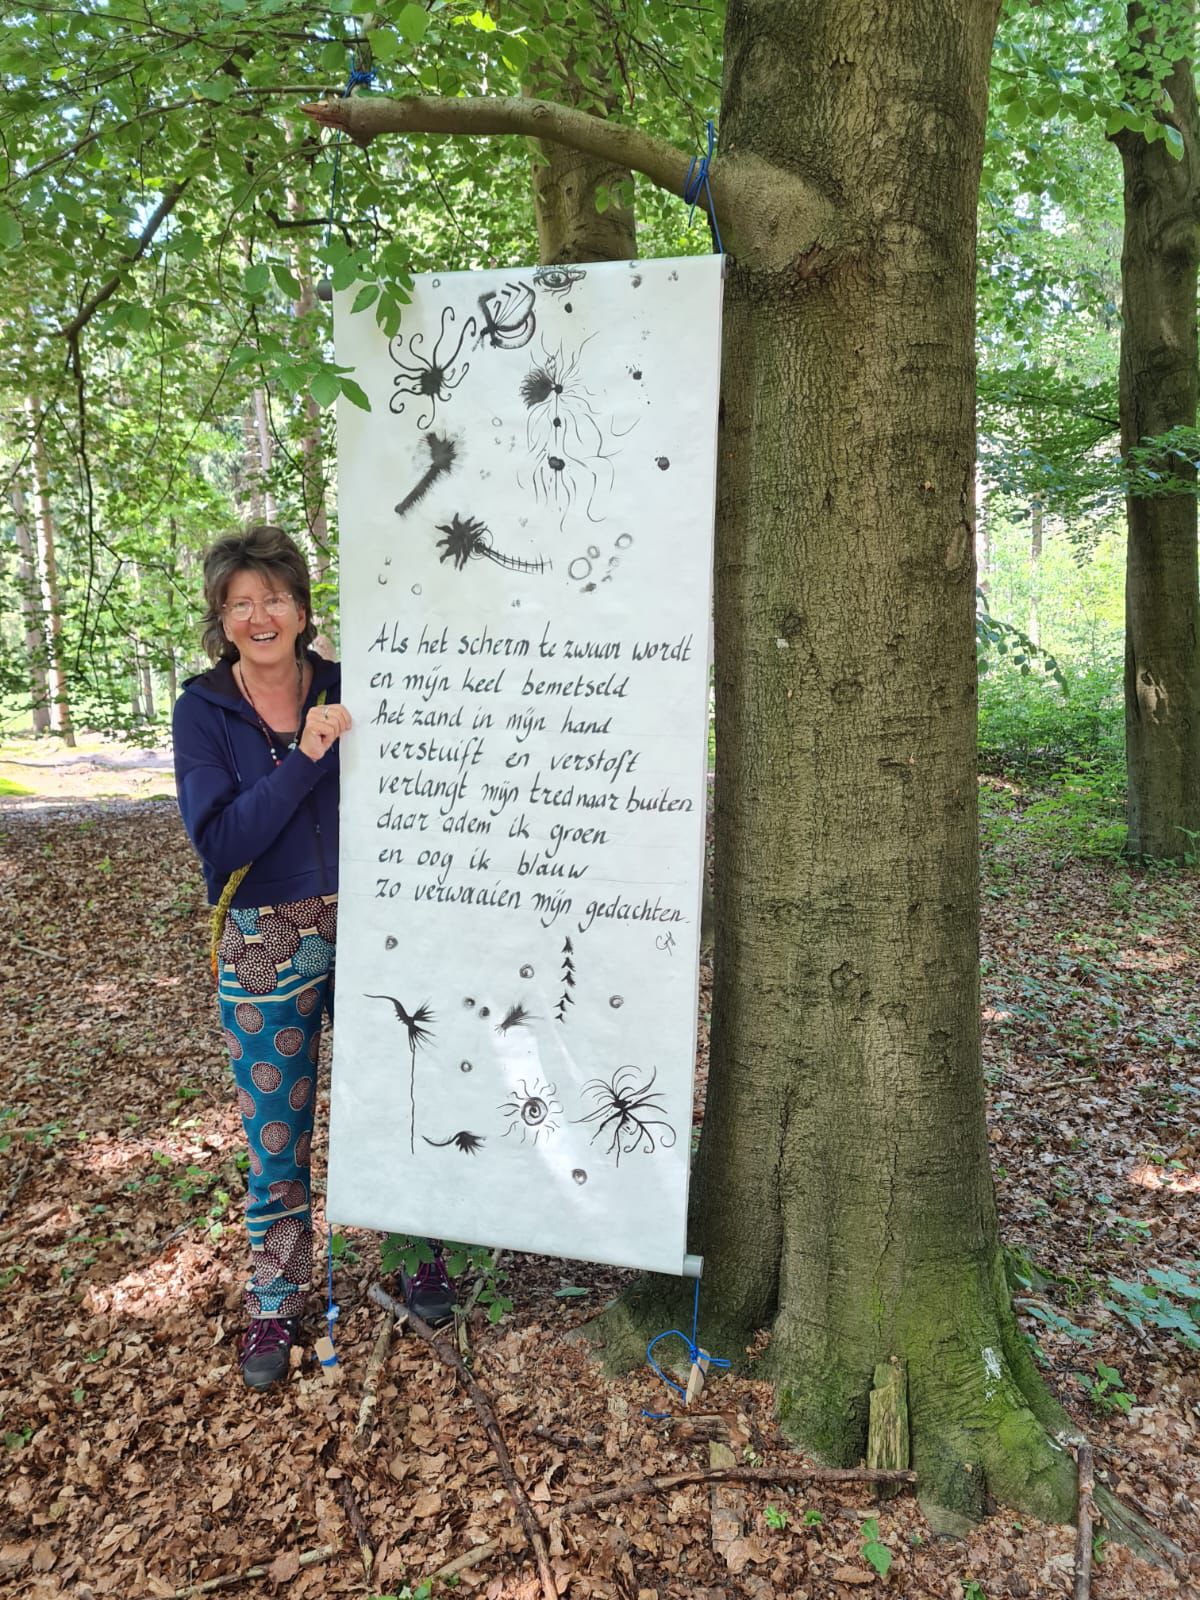 Als het scherm te zwaar wordt
en mijn keel bemetseld
het zand in mijn hand
verstuift en verstoft
verlangt mijn tred naar buiten
daar adem ik groen
en oog ik blauw
zo verwaaien mijn gedachten.